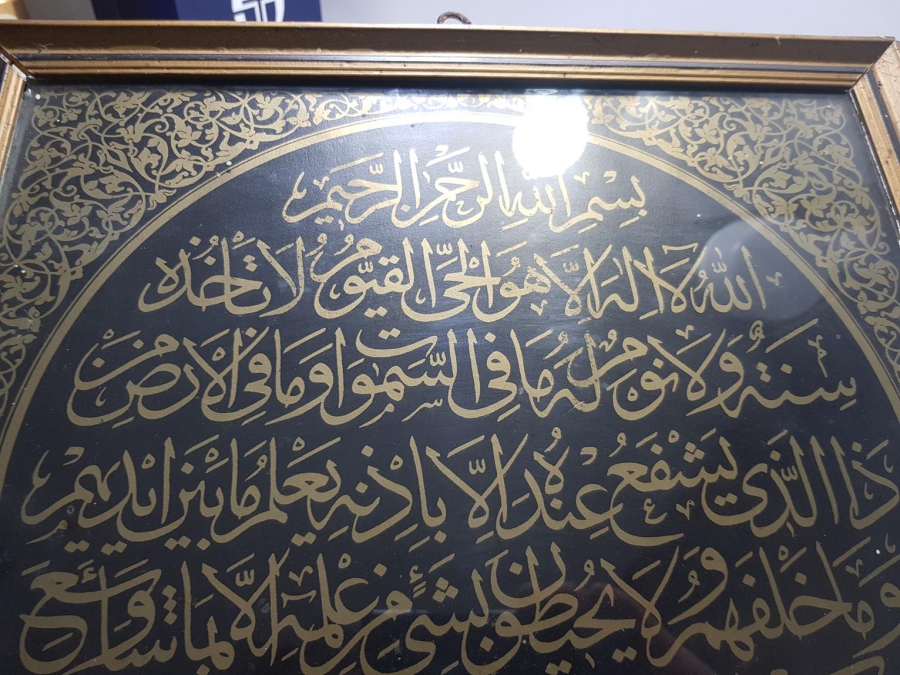 بسم الله الرحمن الرحيم
الله لا اله الا هو الحي القيوم لا تأخذه
سنة ولا نوم له ما في السموات وما في الارض من
ذا الذي يشفع عنده الا باذنه يعلم ما بين ايديهم
وما خلفهم ولا يحيطون بشيء من علمه الا بما شاء وسع